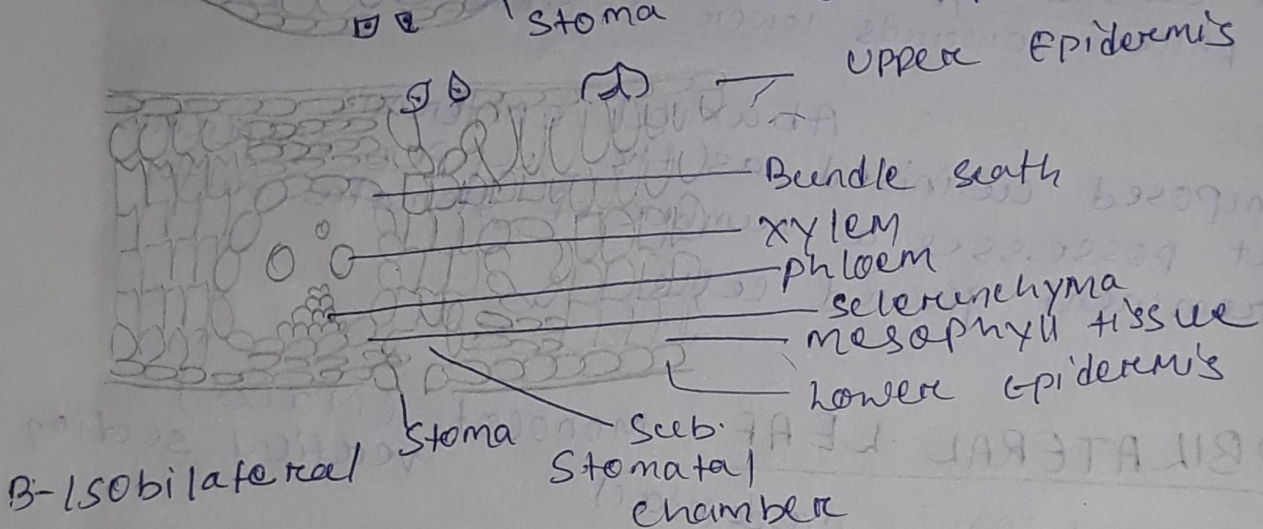 Stoma
Upper Epidermis
Bundle seath
xylem
phloem
selerenchyma
mesophyll tissue
Lower Epidermis
Stoma
Sub.
Stomatal
chamber
B-Isobilateral